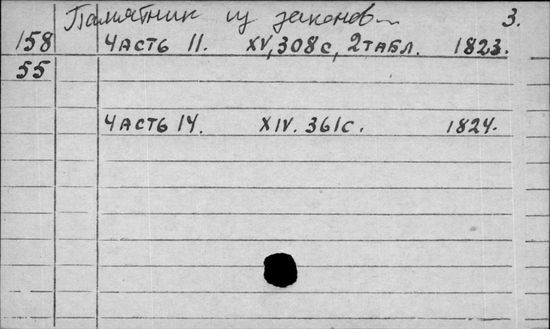 Памятник из законов... 3.
158 Часть 11. XV, 308 с, 2 табл. 1823.
55
Часть 14. XIV. 361 с. 1824.